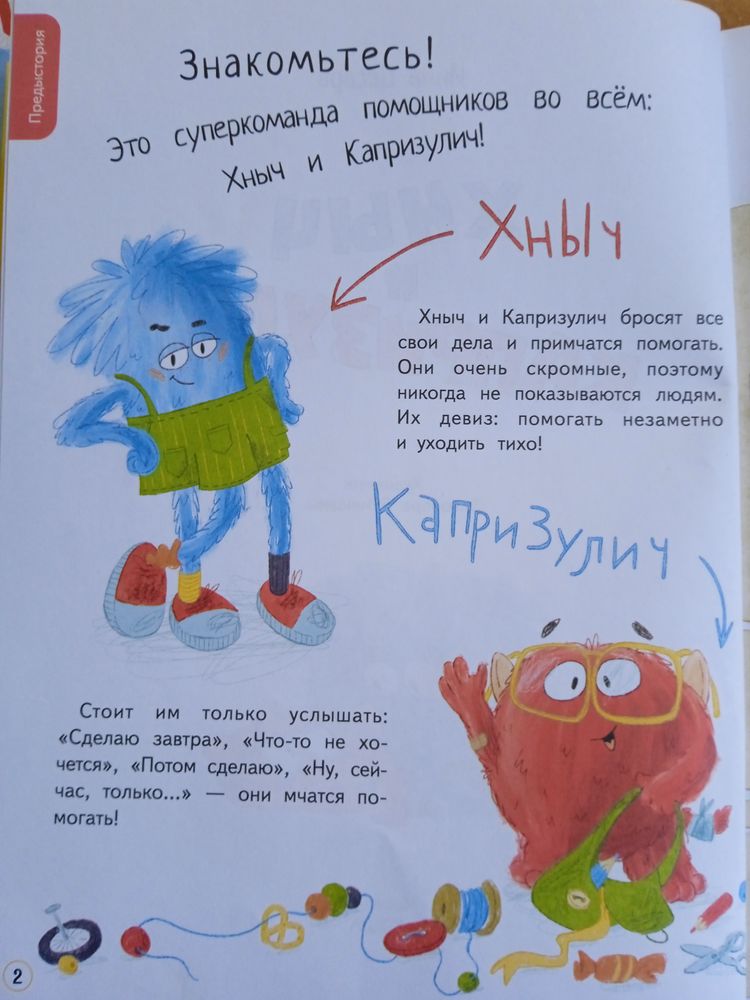 Предыстория
Знакомьтесь!
Это суперкоманда помощников во всём:
Хныч и Капризулич!
Хныч
Хныч и Капризулич бросят все
свои дела и примчатся помогать.
Они очень скромные, поэтому
никогда не показываются людям.
Их девиз: помогать незаметно
и уходить тихо!
Капризулич
Стоит им только услышать:
«Сделаю завтра», «Что-то не хо-
чется», «Потом сделаю», «Ну, сей-
час, только...» — они мчатся по-
могать!
2